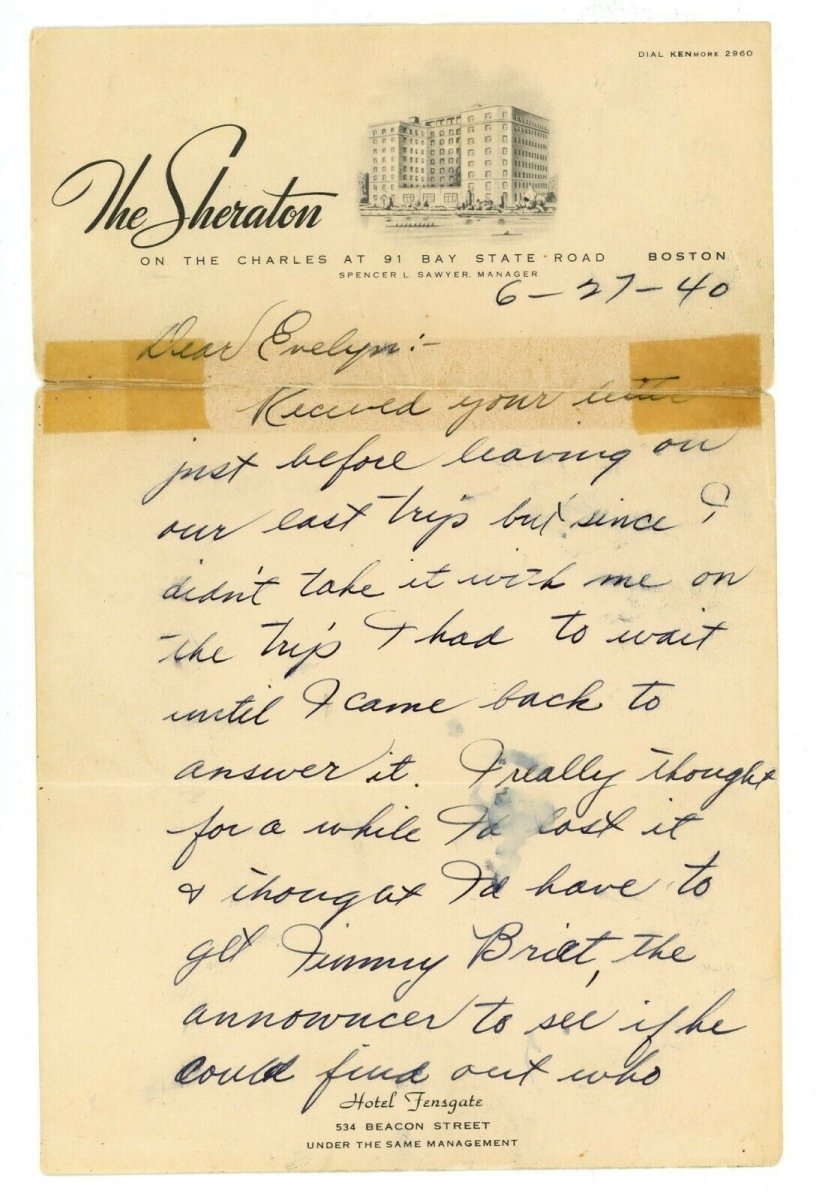 DIAL KENMORE 2960
The Sheraton
ON THE CHARLES AT 91 BAY STATE ROAD BOSTON
SPENCER L. SAWYER, MANAGER
6-27-40
Dear Evelyn:-
Received your letter
just before leaving on
our last trip but since I
didn't take it with me on
the trip I had to wait
until I came back to
answer it. I really thought
for a while I'd lost it
& thought I'd have to
get Jimmy Britt, the
announcer to see if he
could find out who
Hotel Fensgate
534 BEACON STREET
UNDER THE SAME MANAGEMENT